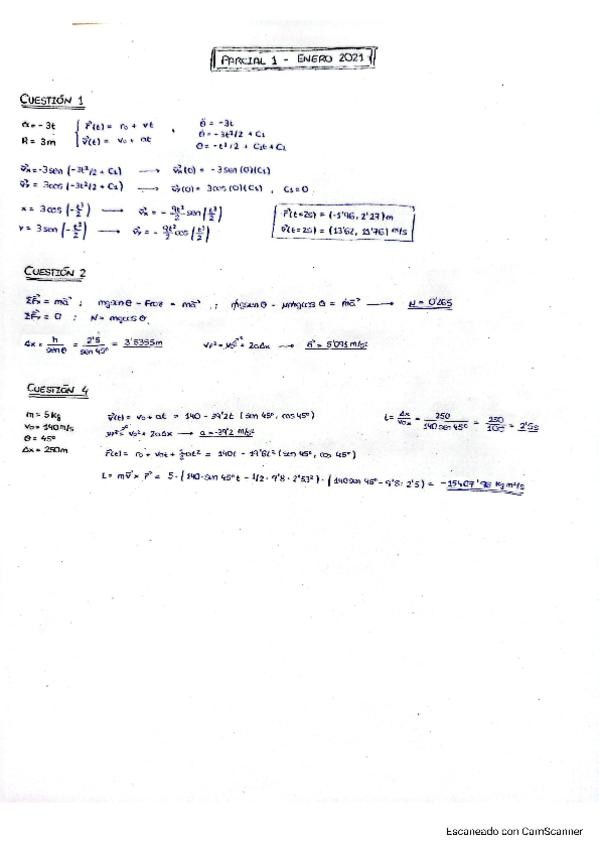 PARCIAL 1 - ENERO 2021
CUESTIÓN 1
α = -3t
R = 3m
r⃗(t) = r₀ + vt
v⃗(t) = v₀ + at
θ̈ = -3t
θ̇ = -3t²/2 + C₁
θ = -t³/2 + C₁t + C₂
= -3sen (-3t²/2 + C₁) → (0) = -3sen(0)(C₁)
= 3cos (-3t²/2 + C₁) → (0) = 3cos(0)(C₁), C₁ = 0
x = 3cos (-t³/2) → v⃗x = - 9t²/2 sen (t³/2)
y = 3sen (-t³/2) → v⃗y = - 9t²/2 cos (t³/2)
r⃗(t=2s) = (-1'96, 2'27) m
v⃗(t=2s) = (13'62, 11'76) m/s
CUESTIÓN 2
ΣFx = ma⃗ ; mgsenθ - Froz = ma⃗ ; mgsenθ - μmgcosθ = ma⃗ → = 0'265
ΣFy = 0 ; N = mgcosθ
Δx = h/senθ = 2'5/sen 45º = 3'5355m
vf² = v₀² + 2aΔx → = 5'091 m/s²
CUESTIÓN 4
m = 5 kg
v₀ = 140 m/s
θ = 45º
Δx = 250m
v⃗(t) = v₀ + at = 140 - 39'2t (sen 45º, cos 45º)
vf² = v₀² + 2aΔx → a = -39'2 m/s²
t = Δx/v₀x = 250/140 sen 45º = 250/ = 2'5s
r⃗(t) = r₀ + v₀t + ½at² = 140t - 19'6t² (sen 45º, cos 45º)
L = mv⃗ × r⃗ = 5 · (140·sen 45º t - 1/2 · 9'8 · 2'53²) · (140sen 45º - 9'8 · 2'5) = -15407'96 kg m²/s
Escaneado con CamScanner